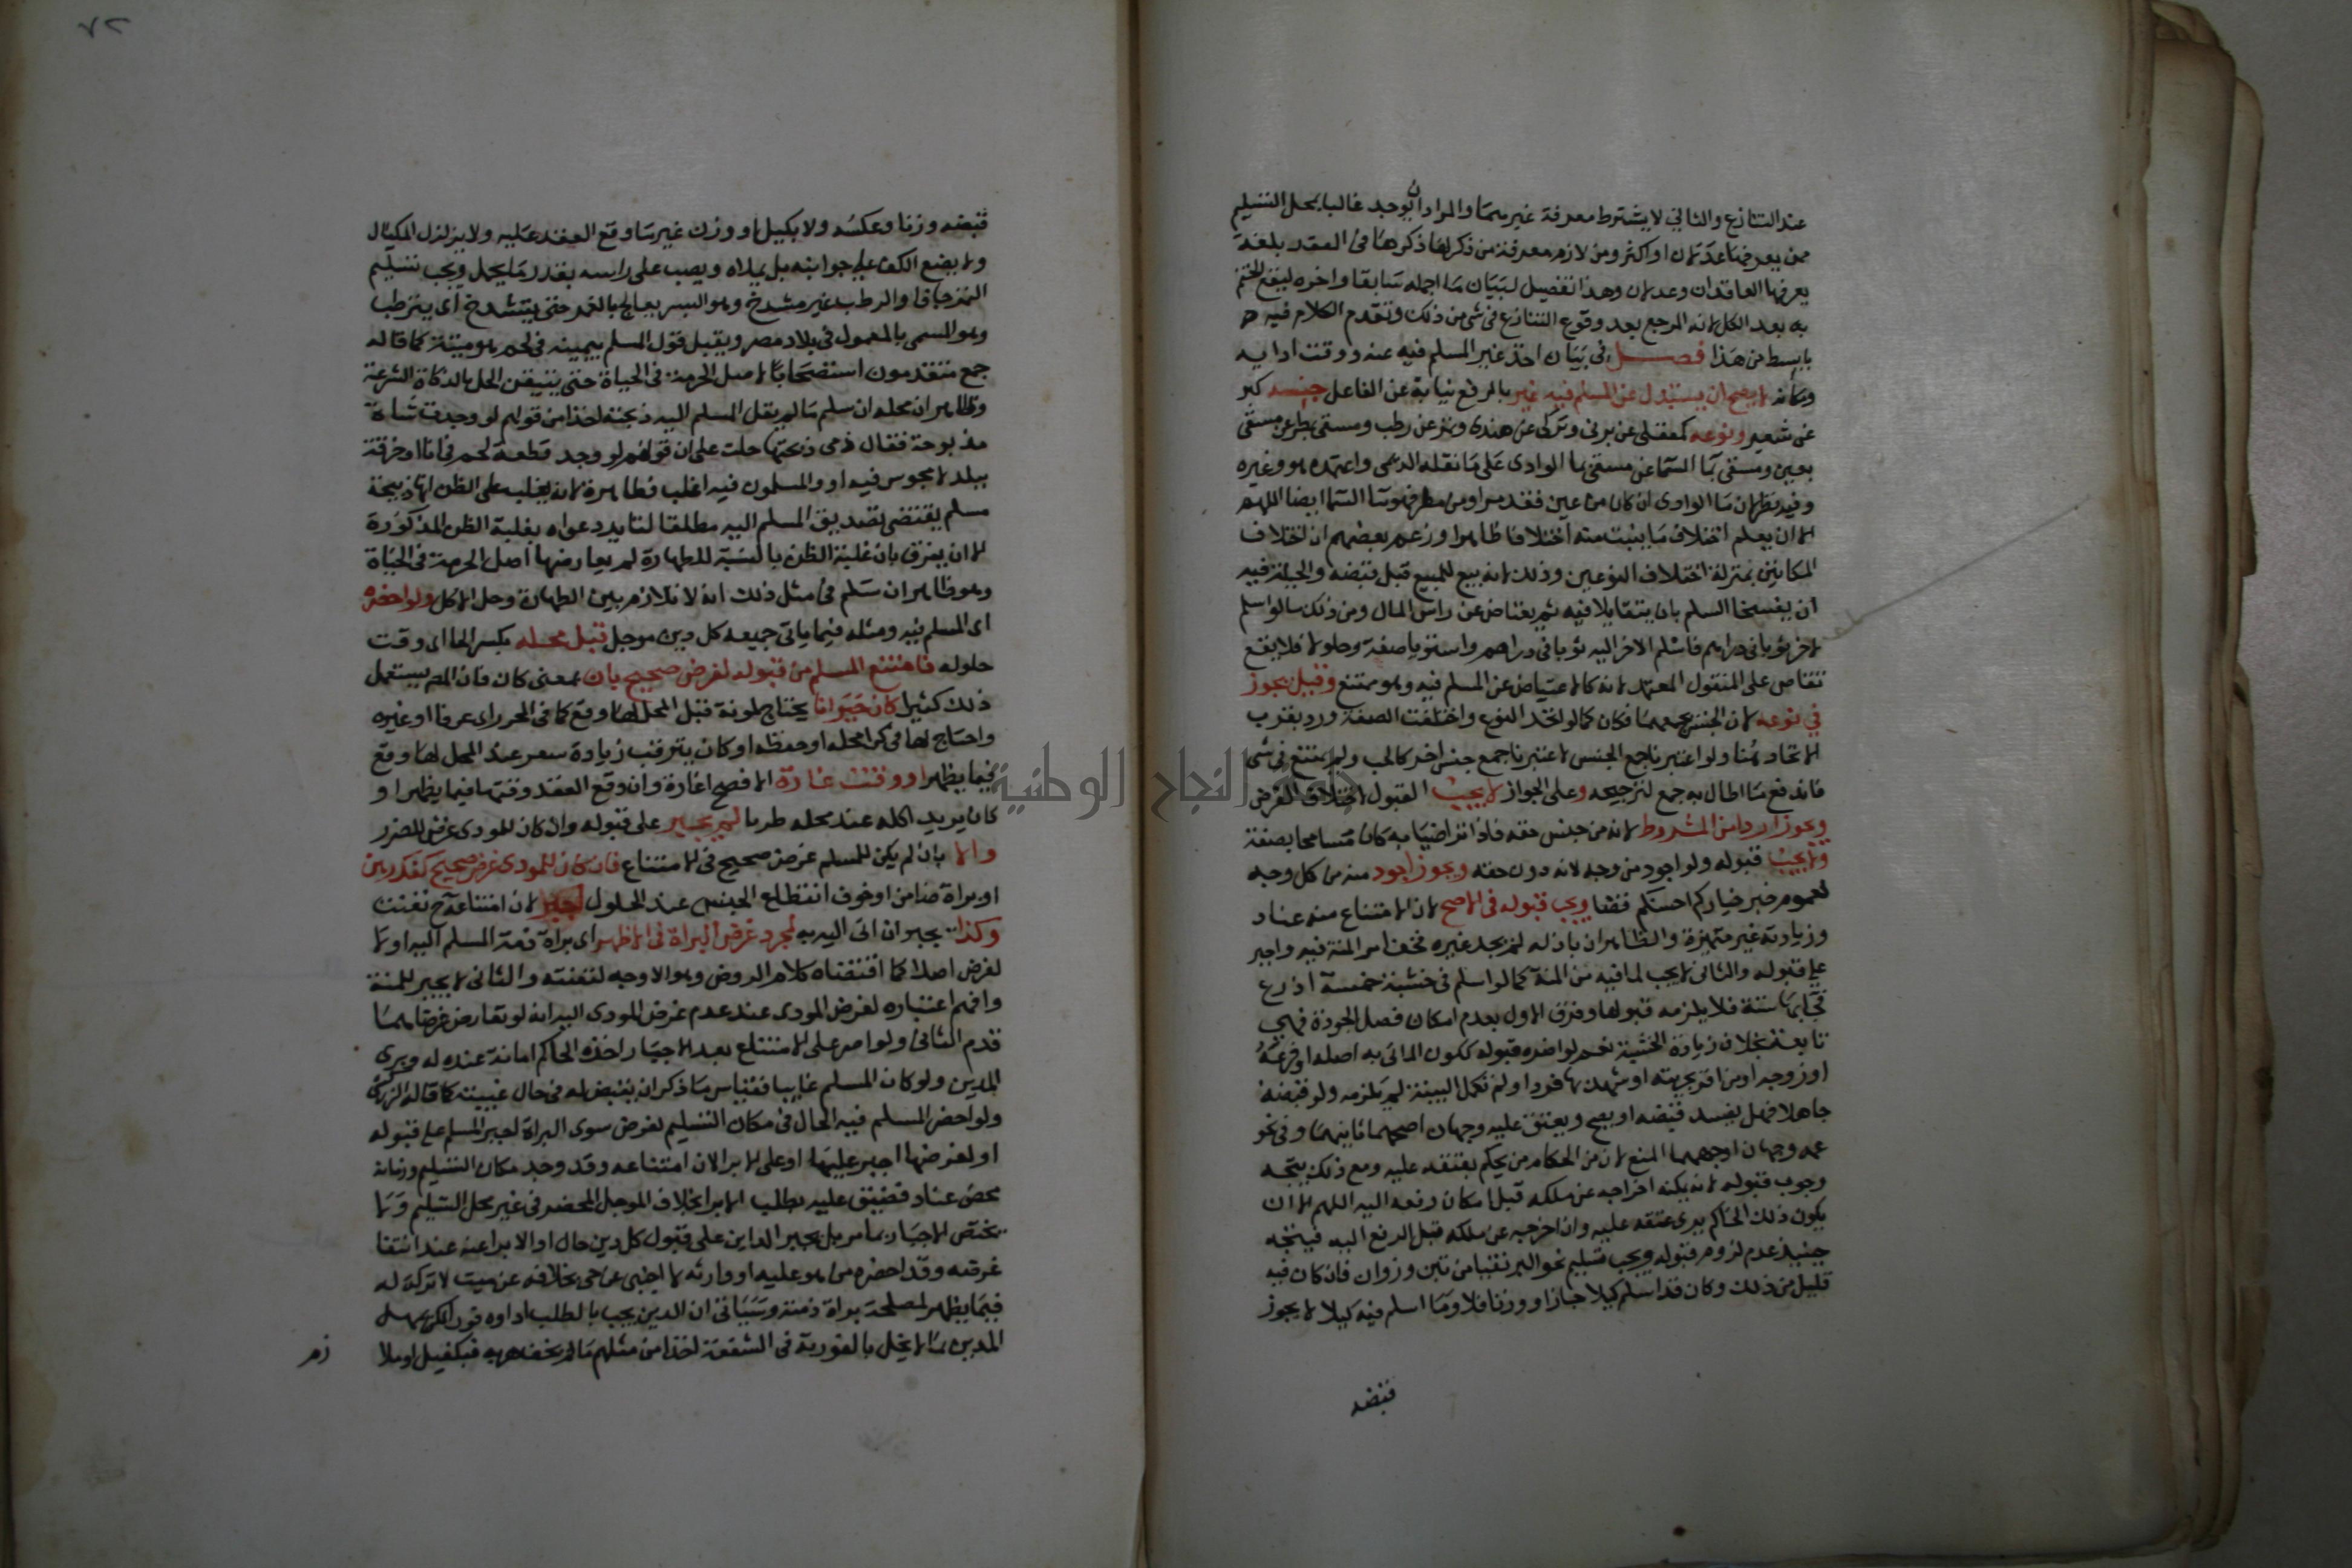 عند التنازع والثاني لا يشترط معرفة غيرهما والمراد ان يوجد غالبا بمحل التسليم
ممن يعرفها عدلان او اكثر ومن لازم معرفة من ذكر لها ذكرها في العقد بلغة
يعرفها العاقدان وعدلان وهذا تفصيل لبيان ما اجمله سابقا واخره ليقع الختم
به بعد الكل لانه المرجع بعد وقوع التنازع في شي من ذلك وتقدم الكلام فيه
بابسط من هذا فصل في بيان اخذ غير المسلم فيه عنه ووقت ادايه
ومكانه لا يصح ان يستبدل عن المسلم فيه غير بالرفع نيابة عن الفاعل جنسه كبر
عن شعير ونوعه كمعقلي عن برني وتركي عن هندي وتمر عن رطب ومسقي بمطر عن مسقي
بعين ومسقي بما السما عن مسقي بما الوادي على ما نقله الريمي واعتمده هو وغيره
وفيه نظر لان ما الوادي ان كان من عين فقد مر او من مطر فهو ما السما ايضا اللهم
الا ان يعلم اختلاف ما ينبت منه اختلافا ظاهرا وزعم بعضهم ان اختلاف
المكانين بمنزلة اختلاف النوعين وذلك لانه بيع للمبيع قبل قبضه والحيلة فيه
ان يفسخا السلم بان يتقايلا فيه ثم يعتاض عن راس المال ومن ذلك ما لو اسلم
لاخر ثوبا في دراهم فاسلم الاخر اليه ثوبا في دراهم واستويا صفة وحلولا فلا يقع
تقاص على المنقول المعتمد لانه كالاعتياض عن المسلم فيه وهو ممتنع وقيل يجوز
في نوعه لان الجنس يجمعهما فكان كما لو اتحد النوع واختلفت الصفة ورد بقرب
الاتحاد هنا ولو اعتبرنا جمع الجنس لاعتبرنا جمع جنس اخر كالحب ولم يمتنع في شي
فاندفع ما اطال به جمع لترجيحه وعلى الجواز لا يجب القبول لاختلاف الغرض
ويجوز اردا من المشروط لانه من جنس حقه فاذا تراضيا به كان مسامحا بصفة
ولا يجب قبوله ولو اجود من وجه لانه دون حقه ويجوز اجود منه من كل وجه
لعموم خبر خياركم احسنكم قضا ويجب قبوله في الاصح لان الامتناع منه عناد
وزيادته غير متميزة والظاهر ان باذله لم يجد غيره فخف امر المنة فيه واجبر
على قبوله والثاني لا يجب لما فيه من المنة كما لو اسلم في خشبة خمسة اذرع
فجا بها ستة فلا يلزمه قبولها وفرق الاول بعدم امكان فصل الجودة فهي
تابعة بخلاف زيادة الخشبة نعم لو اضره قبوله ككون الماتي به اصله او فرعه
او زوجه او من اقر بحريته او شهد بها فرد او لم تكمل البينة لم يلزمه ولو قبضه
جاهلا فهل يفسد قبضه او يصح ويعتق عليه وجهان اصحهما ثانيهما وفي نحو
عمه وجهان اوجههما المنع لان من الحكام من يحكم بعتقه عليه ومع ذلك يتجه
وجوب قبوله لانه يمكنه اخراجه عن ملكه قبل امكان رفعه اليه اللهم الا ان
يكون ذلك الحاكم يرى عتقه عليه وان اخرجه عن ملكه قبل الرفع اليه فيتجه
حينيذ عدم لزوم قبوله ويجب تسليم نحو البر نقيا من تبن وزوان فان كان فيه
قليل من ذلك وكان قد اسلم كيلا جاز او وزنا فلا وما اسلم فيه كيلا لا يجوز
قبضه
قبضه وزنا وعكسه ولا بكيل او وزن غير ما وقع العقد عليه ولا يزلزل المكيال
ولا يضع الكف على جوانبه بل يملاه ويصب على راسه بقدر ما يحمل ويجب تسليم
التمر جافا والرطب غير مشدخ وهو البسر يعالج بالغمر حتى يتشدخ اي يترطب
وهو المسمى بالمعمول في بلاد مصر ويقبل قول المسلم بيمينه في لحم هو ميتة كما قاله
جمع متقدمون استصحابا لاصل الحرمة في الحياة حتى يتيقن الحل بالذكاة الشرعية
وظاهر ان محله ان سلم ما لم يقل المسلم اليه ذبحته اخذا من قولهم لو وجدت شاة
مذبوحة فقال ذمي ذبحتها حلت على ان قولهم لو وجد قطعة لحم في انا او خرقة
ببلد لا مجوس فيه او والمسلمون فيه اغلب فطاهرة لانه يغلب على الظن انها ذبيحة
مسلم يقتضي تصديق المسلم اليه مطلقا لتايد دعواه بغلبة الظن المذكورة
الا ان يفرق بان غلبة الظن بالنسبة للطهارة لم يعارضها اصل الحرمة في الحياة
وهو ظاهر ان سلم في مثل ذلك انه لا تلازم بين الطهارة وحل الاكل ولو احضره
اي المسلم فيه ومثله فيما ياتي جميعه كل دين موجل قبل محله بكسر الحا اي وقت
حلوله فامتنع المسلم من قبوله لغرض صحيح بان بمعنى كان فان المص يستعمل
ذلك كثيرا كان حيوانا يحتاج لمونة قبل المحل لها وقع كما في المحرر اي عرفا او غيره
واحتاج لها في كرا محله او حفظه او كان يترقب زيادة سعر عند المحل لها وقع
فيما يظهر او وقت غارة الافصح اغارة وان وقع العقد وقتها فيما يظهر او
كان يريد اكله عند محله طريا لم يجبر على قبوله وان كان للمودي غرض للضرر
والا بان لم يكن للمسلم غرض صحيح في الامتناع فان كان للمودي غرض صحيح كفك رهن
او براة ضامن او خوف انقطاع الجنس عند الحلول اجبر لان امتناعه ح تعنت
وكذا يجبر ان اتى اليه به لمجرد غرض البراة في الاظهر اي براة ذمة المسلم اليه او لا
لغرض اصلا كما اقتضاه كلام الروض وهو الاوجه لتعنته والثاني لا يجبر للمنة
وافهم اعتباره لغرض المودي عند عدم غرض المودى اليه انه لو تعارض غرضاهما
قدم الثاني ولو اصر على الامتناع بعد الاجبار اخذه الحاكم امانة عنده له وبرى
المدين ولو كان المسلم غايبا فقياس ما ذكر ان يقبض له في حال غيبته كما قاله الزركشي
ولو احضر المسلم فيه الحال في مكان التسليم لغرض سوى البراة اجبر المسلم على قبوله
او لغرضها اجبر عليها او على الابرا لان امتناعه وقد وجد مكان التسليم وزمانه
محض عناد فضيق عليه بطلب الابرا بخلاف الموجل المحضر في غير محل التسليم ولا
يختص الاجبار بما مر بل يجبر الداين على قبول كل دين حال او الابرا عنه عند انتفا
غرضه وقد احضره من هو عليه او وارثه لا اجنبي عن حي بخلافه عن ميت لا تركة له
فيما يظهر لمصلحة براة ذمته وسياتي ان الدين يجب بالطلب اداوه فورا لكن يمهل
المدين ما لا يخل بالفورية في الشفعة اخذا من مثلهم ما لم يخف هربه فبكفيل او ملا
زم
٧٢
جامعة النجاح الوطنية